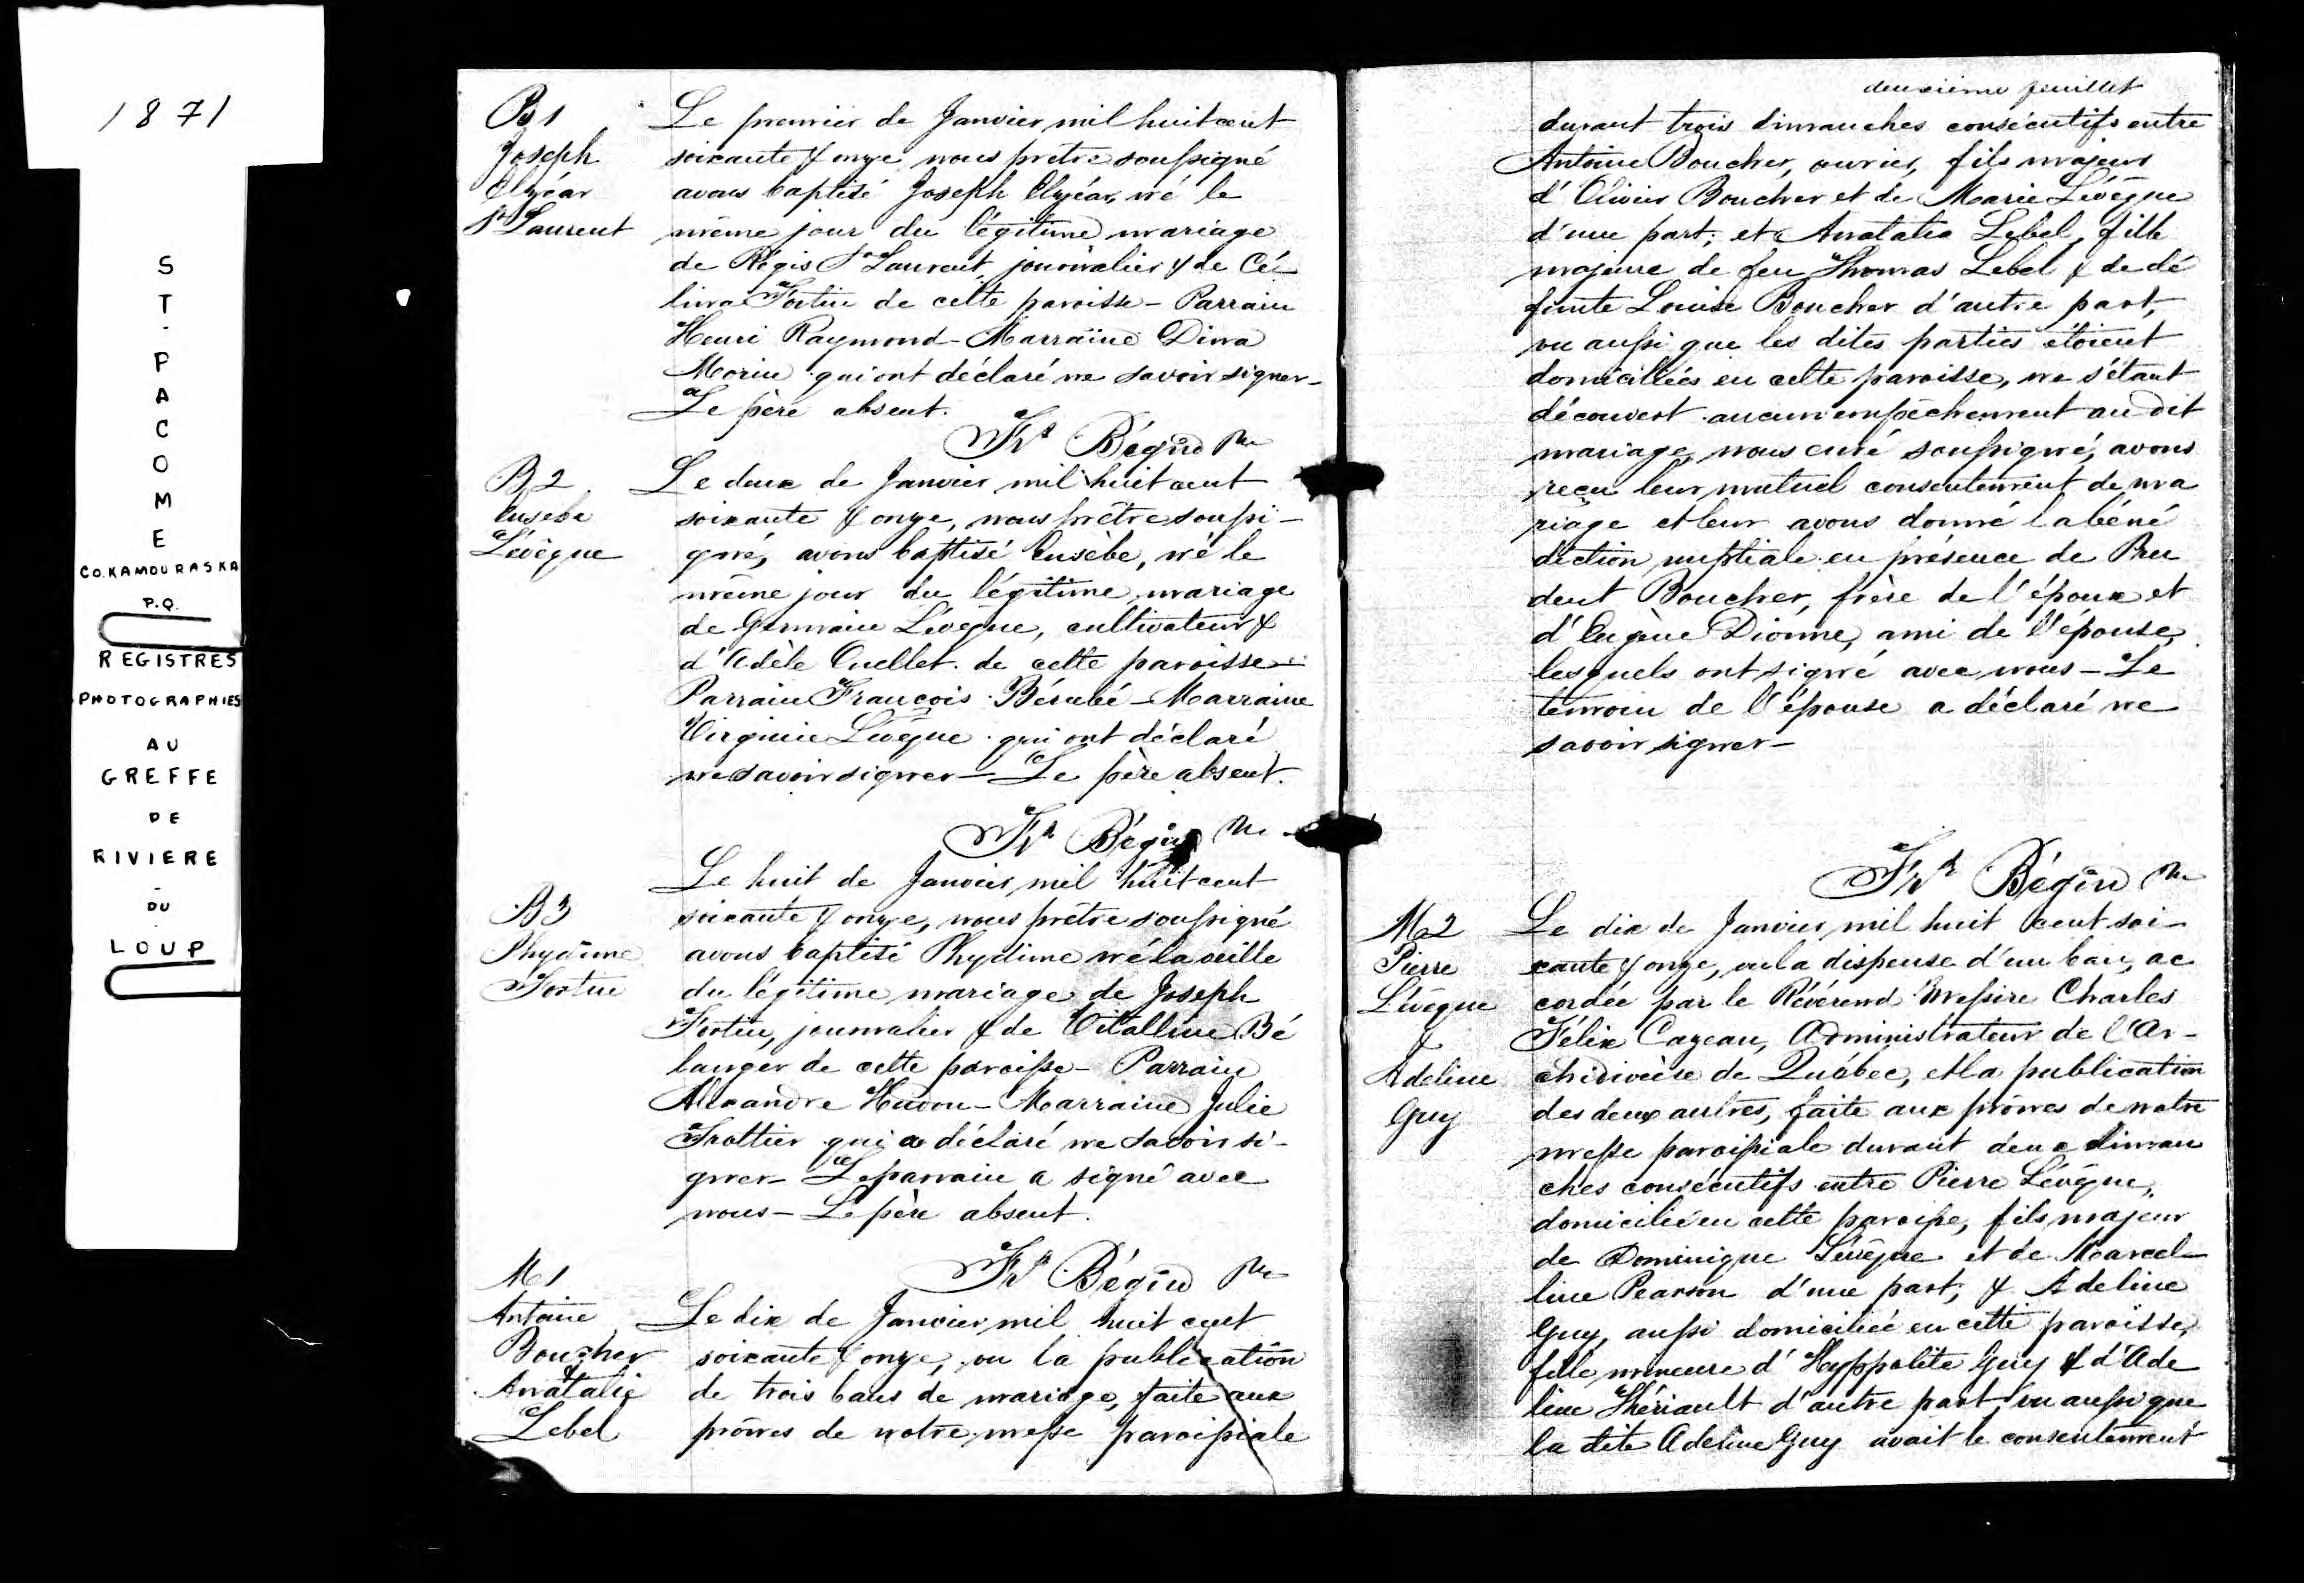 1871
ST-PACOME
CO. KAMOURASKA
P.Q.
REGISTRES
PHOTOGRAPHIES
AU
GREFFE
DE
RIVIERE
-
DU
LOUP
B1
Joseph
Elzéar
St Laurent
Le premier de Janvier mil huit cent
soixante & onze nous prêtre soussigné
avons baptisé Joseph Elzéar, né le
même jour du légitime mariage
de Régis St Laurent, journalier & de Cé-
lina Fortin de cette paroisse - Parrain
Henri Raymond - Marraine Dina
Morin qui ont déclaré ne savoir signer -
Le père absent.
Frs Bégin Ptre
B2
Eusèbe
Lévêque
Le deux de Janvier mil huit cent
soixante & onze, nous prêtre soussi-
gné, avons baptisé Eusèbe, né le
même jour du légitime mariage
de Germain Lévêque, cultivateur &
d'Adèle Ouellet de cette paroisse -
Parrain François Bérubé - Marraine
Virginie Lévêque qui ont déclaré
ne savoir signer - Le père absent.
Frs Bégin Ptre
B3
Phydime
Fortin
Le huit de Janvier mil huit cent
soixante & onze, nous prêtre soussigné
avons baptisé Phydime né la veille
du légitime mariage de Joseph
Fortin, journalier & de Vitalline Bé
langer de cette paroisse - Parrain
Alexandre Hudon - Marraine Julie
Trottier qui a déclaré ne savoir si-
gner - Le parrain a signé avec
nous - Le père absent.
Frs Bégin Ptre
M1
Antoine
Boucher
&
Anatalie
Lebel
Le dix de Janvier mil huit cent
soixante & onze, vu la publication
de trois bans de mariage, faite aux
prônes de notre messe paroissiale
deuxième feuillet
durant trois dimanches consécutifs entre
Antoine Boucher, ouvrier, fils majeur
d'Olivier Boucher et de Marie Lévêque
d'une part; et Anatalie Lebel, fille
majeure de feu Thomas Lebel & de dé
funte Louise Boucher d'autre part,
vu aussi que les dites parties étoient
domiciliées en cette paroisse, ne s'étant
découvert aucun empêchement au dit
mariage, nous curé soussigné, avons
reçu leur mutuel consentement de ma
riage et leur avons donné la béné
diction nuptiale en présence de Pru
dent Boucher, frère de l'époux et
d'Eugène Dionne, ami de l'épouse,
lesquels ont signé avec nous - Le
temoin de l'épouse a déclaré ne
savoir signer -
Frs Bégin Ptre
M2
Pierre
Lévêque
&
Adeline
Guy
Le dix de Janvier mil huit cent soi-
xante & onze, vu la dispense d'un ban, ac
cordée par le Révérend Messire Charles
Félix Cazeau, Administrateur de l'Ar-
chidiocèse de Québec, et la publication
des deux autres, faite aux prônes de notre
messe paroissiale durant deux diman
ches consécutifs entre Pierre Lévêque,
domicilié en cette paroisse, fils majeur
de Dominique Lévêque et de Marcel-
line Pearson d'une part, & Adeline
Guy, aussi domiciliée en cette paroisse,
fille mineure d'Hyppolite Guy & d'Ade
line Thériault d'autre part, vu aussi que
la dite Adeline Guy avait le consentement